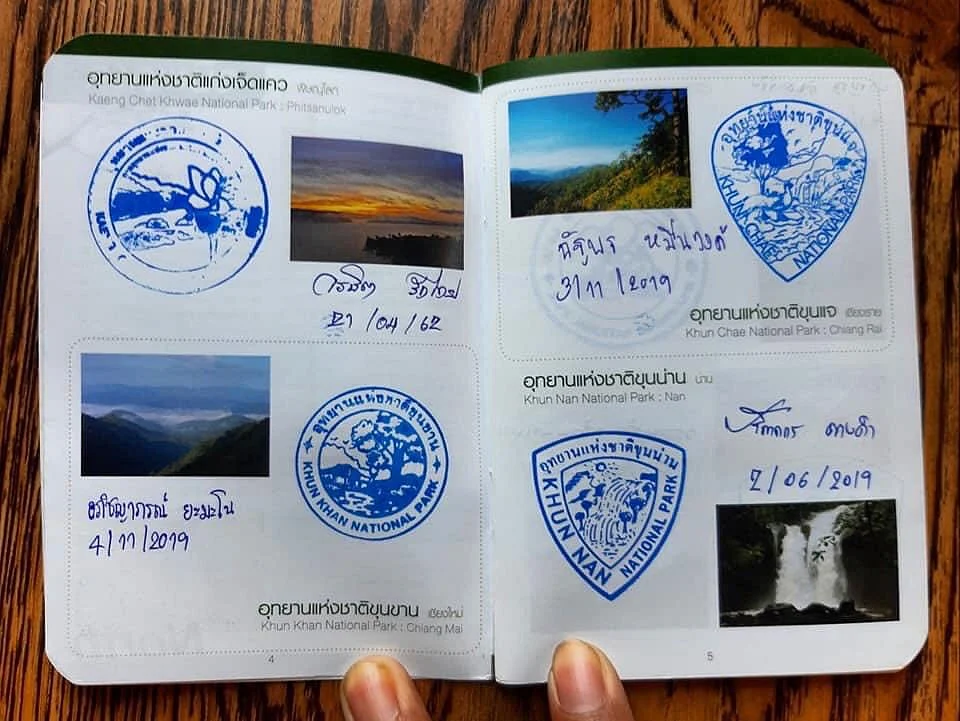 อุทยานแห่งชาติแก่งเจ็ดแคว พิษณุโลก
Kaeng Chet Khwae National Park : Phitsanulok
21 /04 /62
อุทยานแห่งชาติขุนขาน
KHUN KHAN NATIONAL PARK
4/11/2019
อุทยานแห่งชาติขุนขาน เชียงใหม่
Khun Khan National Park : Chiang Mai
4
อุทยานแห่งชาติขุนแจ
KHUN CHAE NATIONAL PARK
3/11/2019
อุทยานแห่งชาติขุนแจ เชียงราย
Khun Chae National Park : Chiang Rai
อุทยานแห่งชาติขุนน่าน น่าน
Khun Nan National Park : Nan
อุทยานแห่งชาติขุนน่าน
KHUN NAN NATIONAL PARK
2/06/2019
5